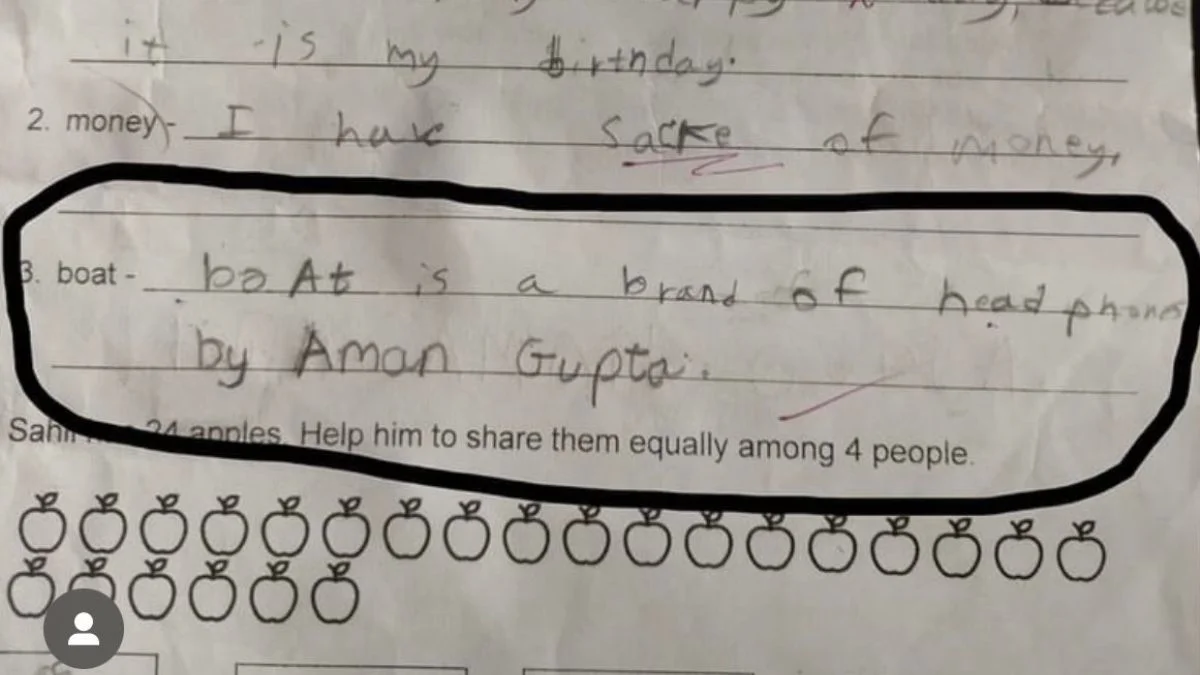 it is my birthday.
2. money - I have sacke of money,
3. boat - boAt is a brand of head phones
by Aman Gupta.
24 apples. Help him to share them equally among 4 people.